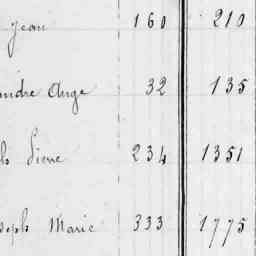 Jean 160 210
andre Ange 32 135
ph Pierre 234 1351
oseph Marie 333 1775